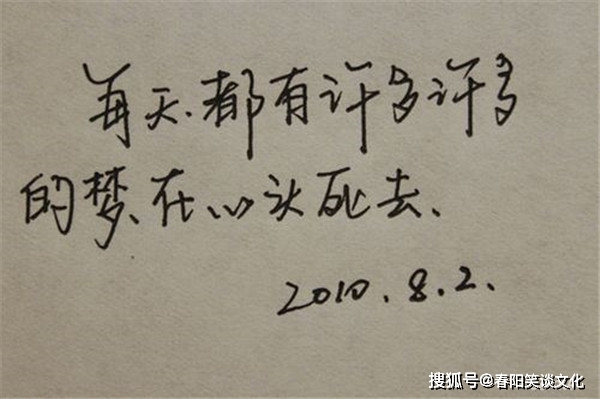 每天、都有许多许多
的梦、在心头死去、
2010.8.2.
搜狐号@春阳笑谈文化